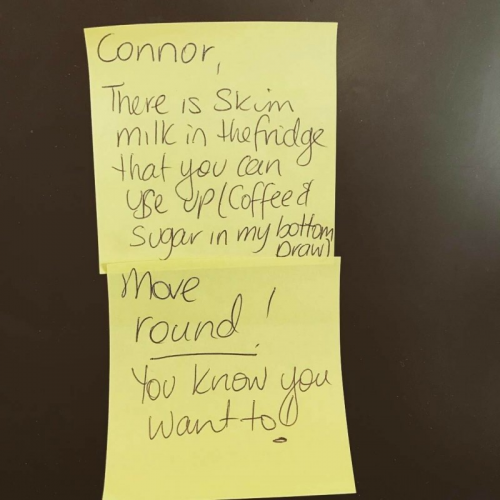 Connor,
There is Skim
milk in the fridge
that you can
use up (Coffee &
Sugar in my bottom
Draw)
Move
round!
You know you
want to!